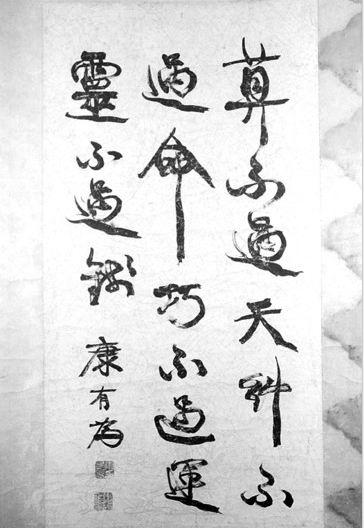 算不過天料不
過命巧不過運
靈不過錢
康有為